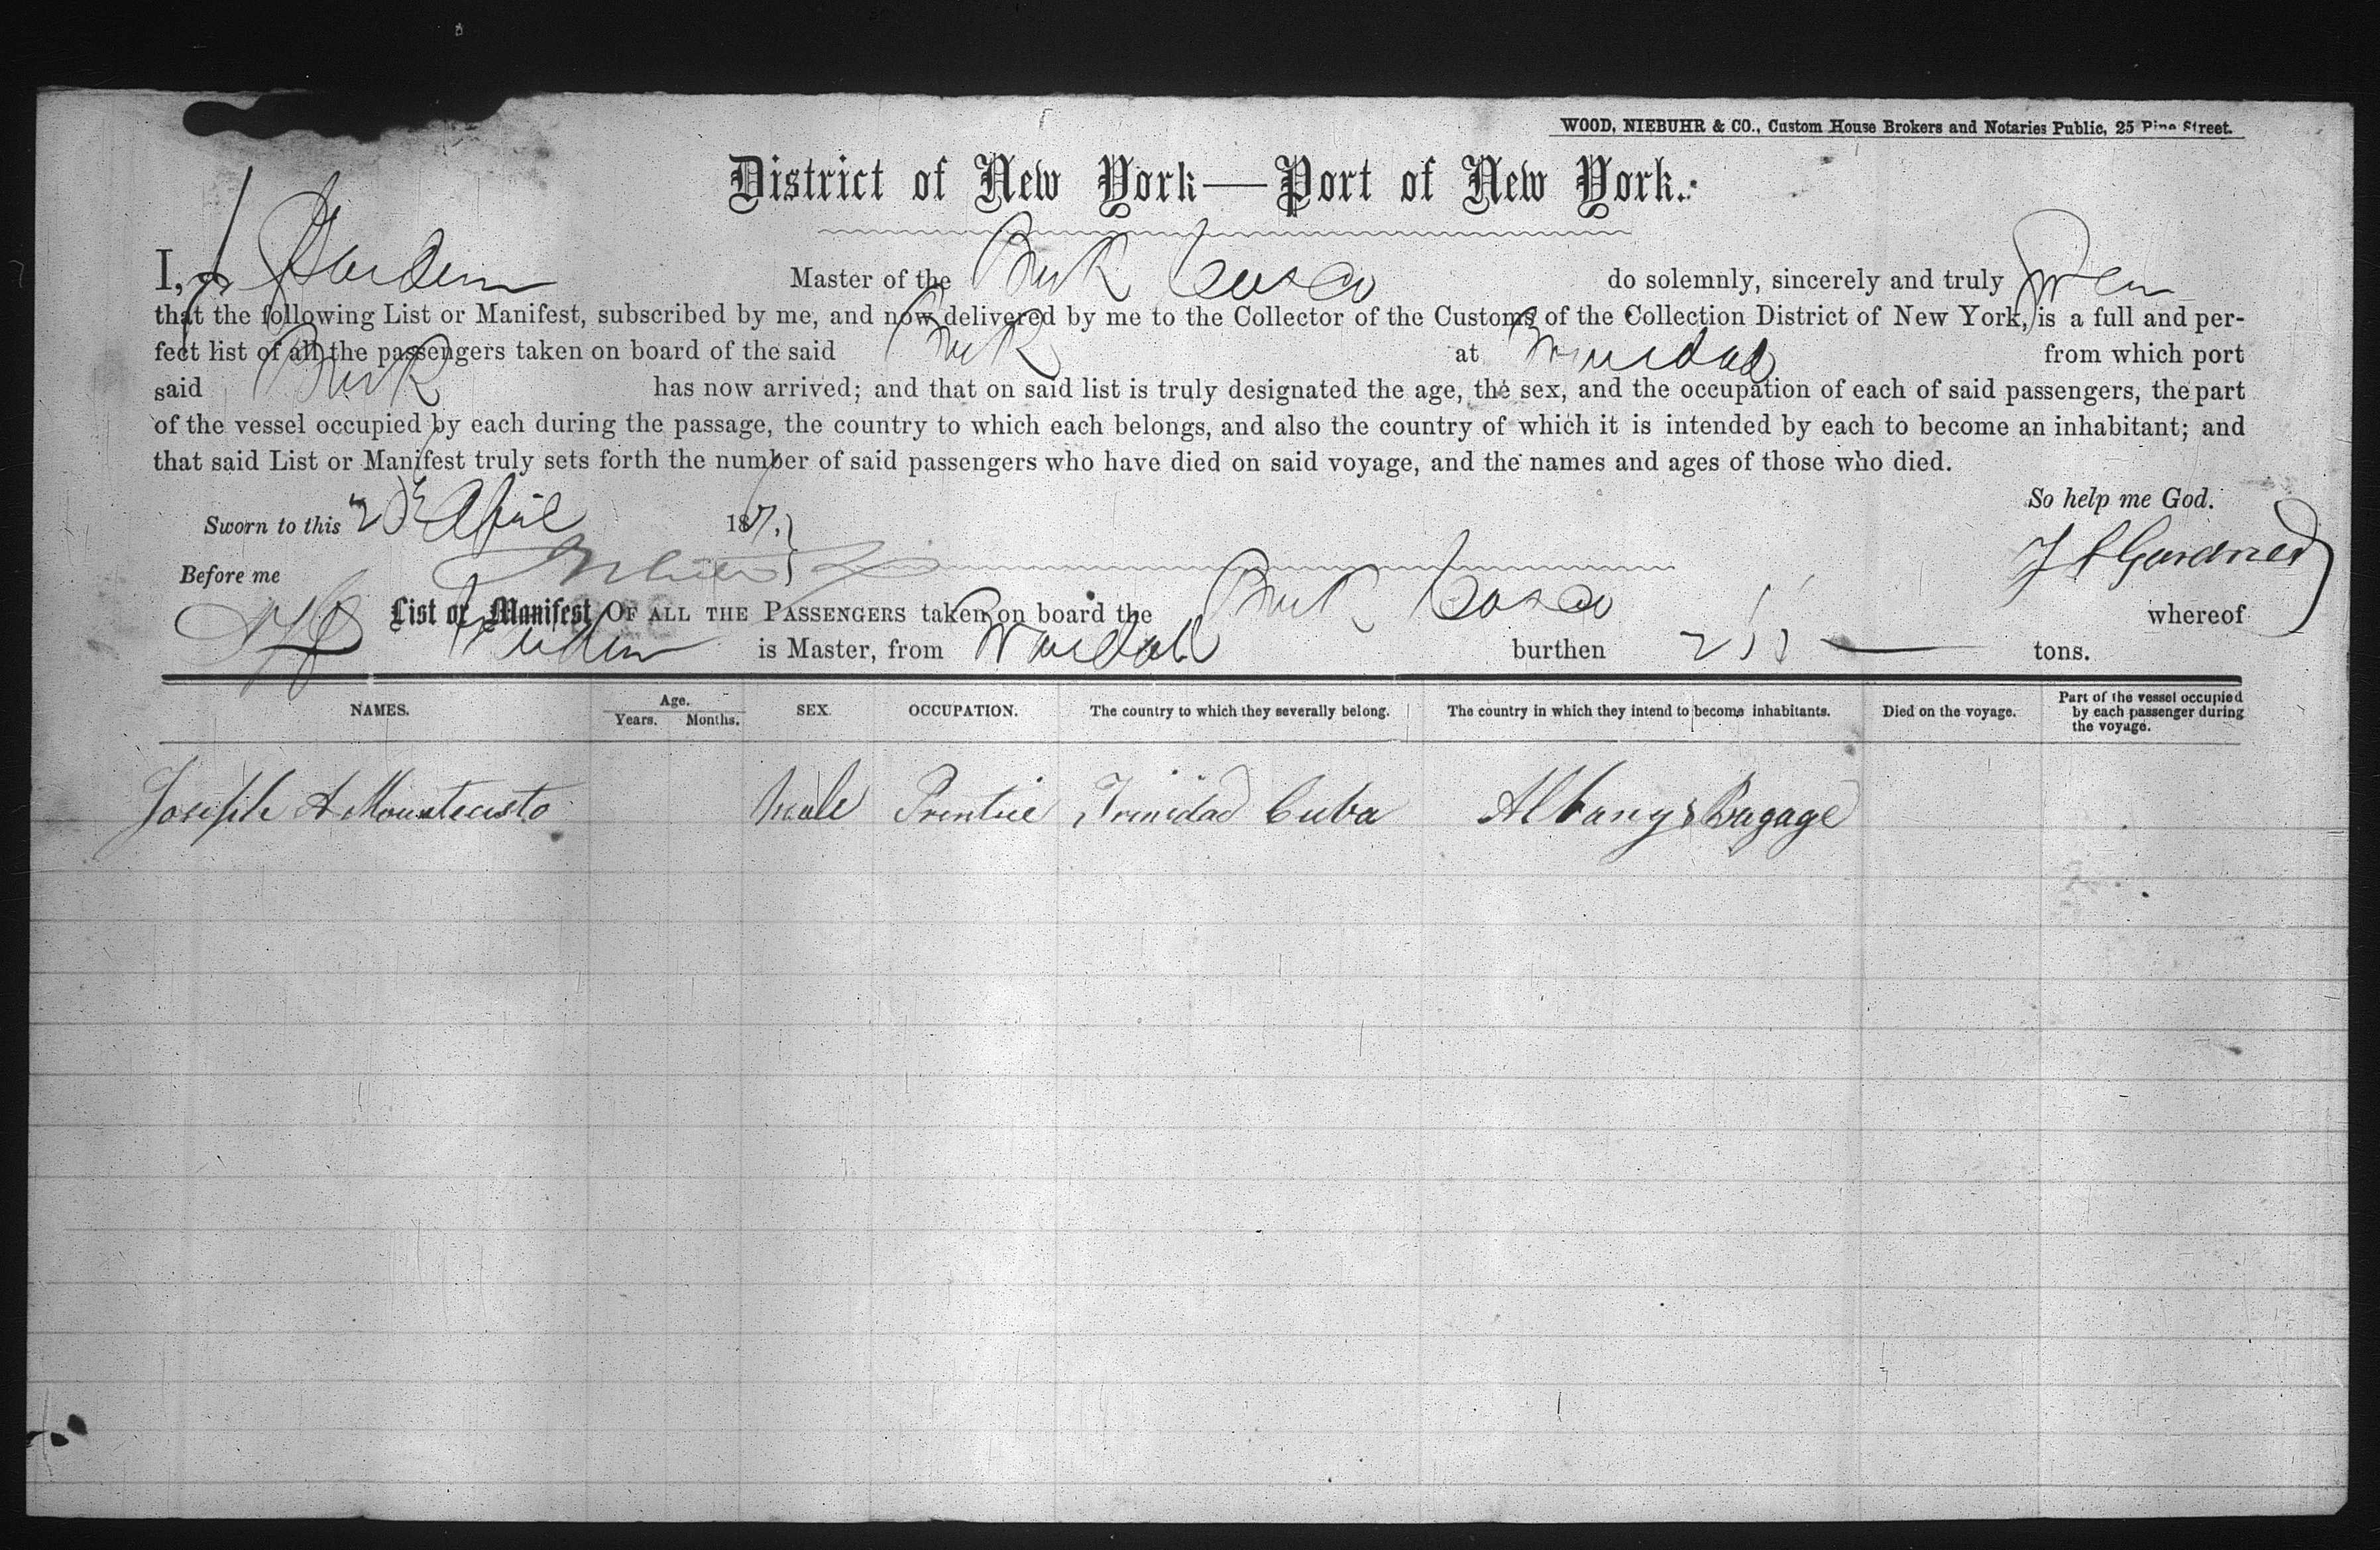 WOOD, NIEBUHR & CO., Custom House Brokers and Notaries Public, 25 Pine Street.
District of New York—Port of New York.
I, Master of the do solemnly, sincerely and truly
that the following List or Manifest, subscribed by me, and now delivered by me to the Collector of the Customs of the Collection District of New York, is a full and per-
fect list of all the passengers taken on board of the said at Trinidad from which port
said has now arrived; and that on said list is truly designated the age, the sex, and the occupation of each of said passengers, the part
of the vessel occupied by each during the passage, the country to which each belongs, and also the country of which it is intended by each to become an inhabitant; and
that said List or Manifest truly sets forth the number of said passengers who have died on said voyage, and the names and ages of those who died.
So help me God.
Sworn to this April 187
Gardner
Before me
List or Manifest OF ALL THE PASSENGERS taken on board the whereof
is Master, from Trinidad burthen tons.
NAMES. Age. Years. Months. SEX. OCCUPATION. The country to which they severally belong. The country in which they intend to become inhabitants. Died on the voyage. Part of the vessel occupied by each passenger during the voyage.
Joseph A Mountecusto Male Prentice Trinidad Cuba Albany & Bagage